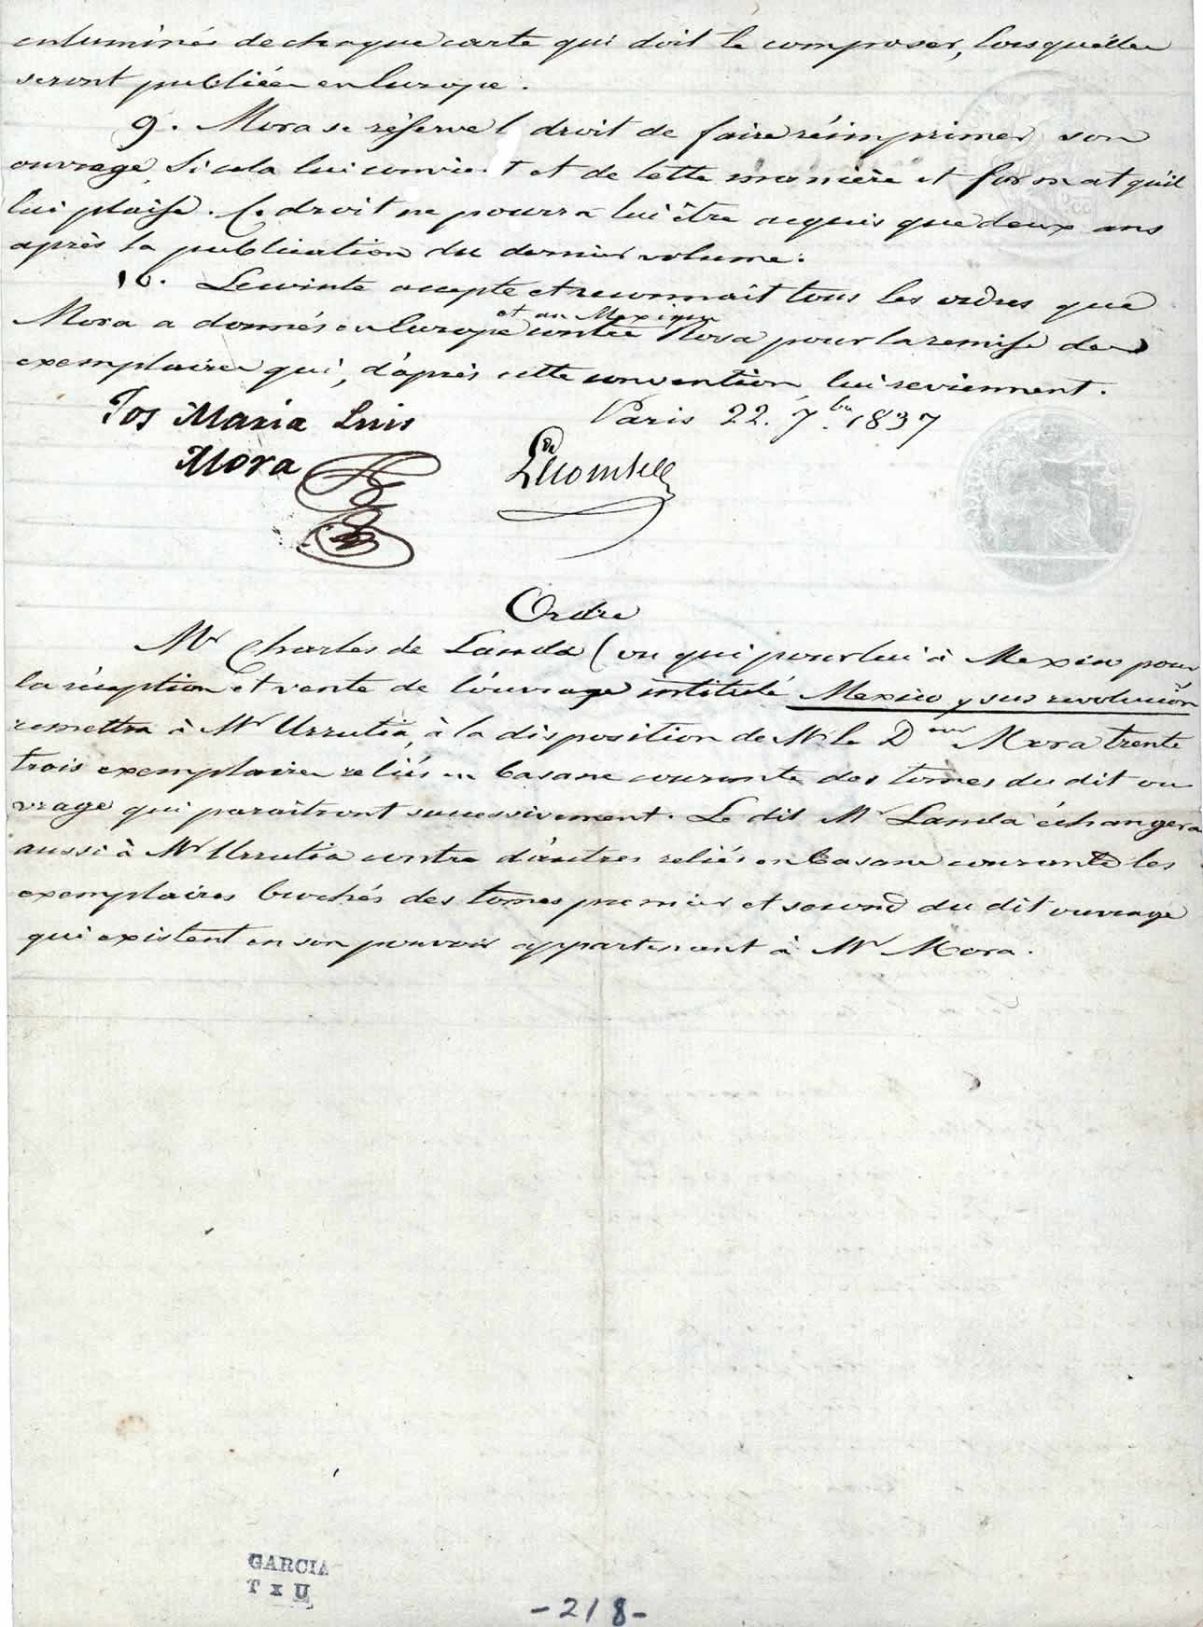 enluminés de chaque carte qui doit le composer, lorsqu'elles
seront publiées en Europe.
9. Mora se réserve l droit de faire réimprimer son
ouvrage, si cela lui convient et de telle manière et format qu'il
lui plaise. Ce droit ne pourra lui être acquis que deux ans
après la publication du dernier volume.
10. Lecointe accepte et reconnaît tous les ordres que
et au Mexique
Mora a donnés en Europe contre Rosa pour la remise des
exemplaires qui, d'après cette convention, lui reviennent.
Jos Maria Luis
Mora
Paris 22. 7bre 1837
Ordre
Mr Charles de Landa (ou qui pour lui à Mexico pour
la réception et vente de l'ouvrage intitulé Mexico y sus revolución
remettra à Mr Urrutia, à la disposition de Mr le Deur Mora trente
trois exemplaires reliés en basane courante des tomes du dit ou
vrage qui paraîtront successivement. Le dit Mr Landa échangera
aussi à Mr Urrutia contre d'autres reliés en basane courante les
exemplaires brochés des tomes premier et second du dit ouvrage
qui existent en son pouvoir appartenant à Mr Mora.
GARCIA
T x U
-218-